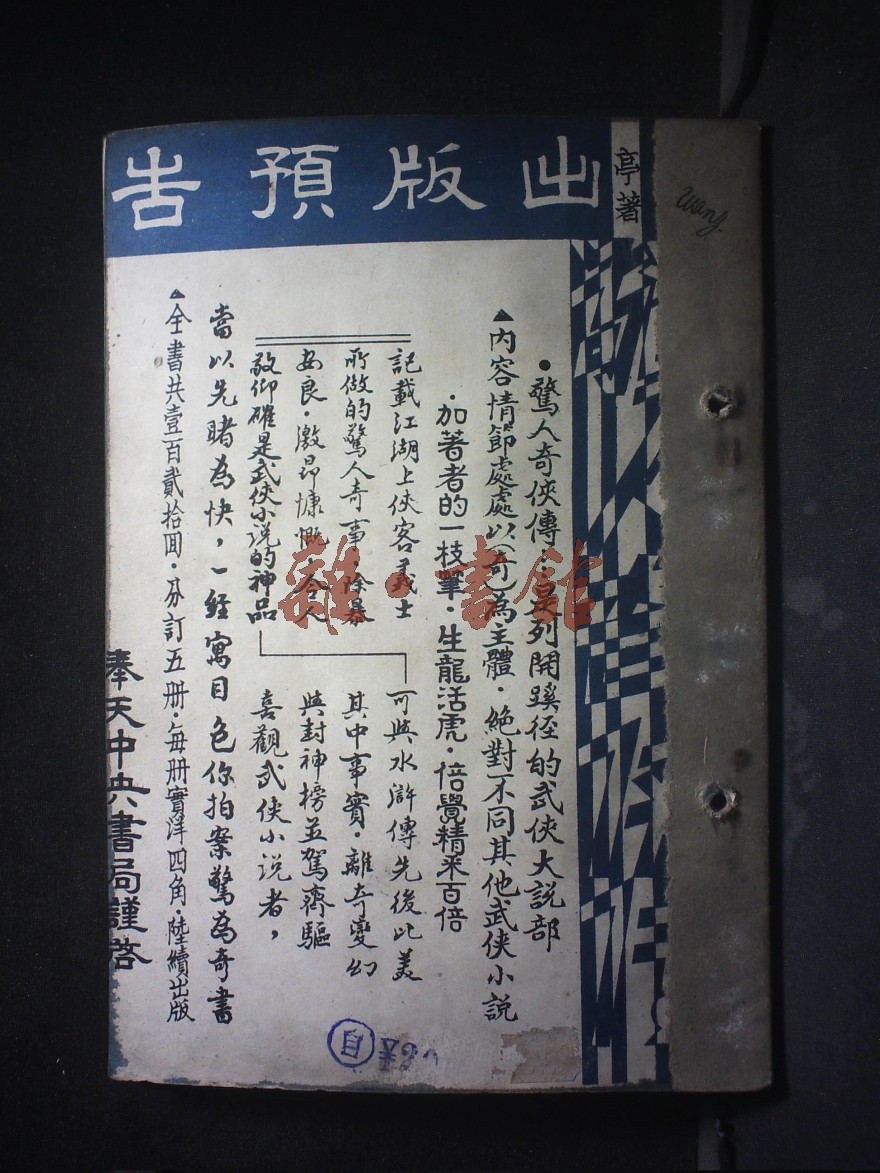 出版預告
亭著
Wang.
驚人奇俠傳
•驚人奇俠傳••是列開蹊徑的武俠大說部
▲內容情節處處以(奇)為主體•絕對不同其他武俠小說
•加著者的一枝筆•生龍活虎•倍覺精采百倍
記載江湖上俠客義士
所做的驚人奇事•除暴
安良•激昂慷慨•令人
敬仰確是武俠小說的神品
可與水滸傳先後比美
其中事實•離奇變幻
與封神榜並駕齊驅
喜觀武俠小說者，
當以先睹為快，一經寓目包你拍案驚為奇書
▲全書共壹百貳拾回•分訂五册•每册實洋四角•陸續出版
奉天中央書局謹啓
雜•書館